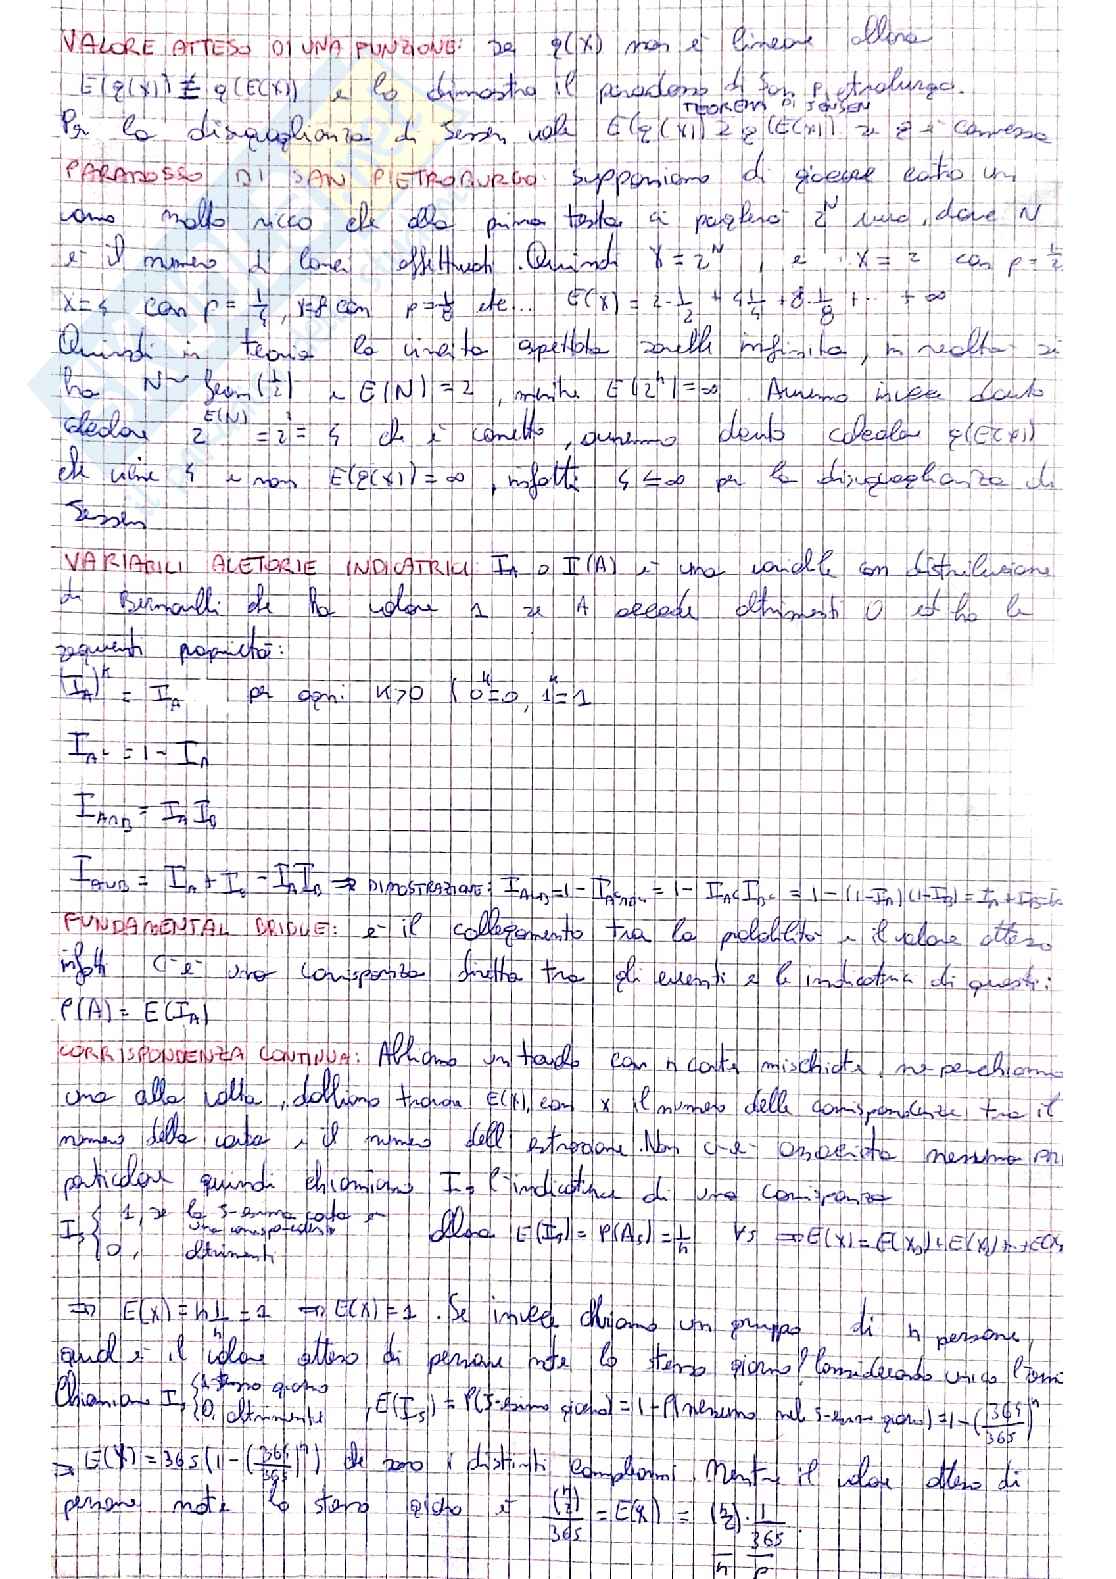 VALORE ATTESO DI UNA FUNZIONE: se g(x) non è lineare allora
E(g(x)) ≠ g(E(x)) e lo dimostra il paradosso di San Pietroburgo.
TEOREMA DI JENSEN
Per la disuguaglianza di Jensen vale E(g(x)) ≥ g(E(x)) se g è convessa
PARADOSSO DI SAN PIETROBURGO: supponiamo di giocare contro un
uomo molto ricco che alla prima testa ci pagherà 2^N euro, dove N
è il numero di lanci effettuati. Quindi X = 2^N, e X = 2 con p = 1/2
X=4 con p = 1/4, X=8 con p = 1/8 etc... E(X) = 2·1/2 + 4·1/4 + 8·1/8 + ... + ∞
Quindi in teoria la vincita aspettata sarebbe infinita, in realtà si
ha N ~ Geom(1/2) e E(N) = 2, mentre E(2^N) = ∞. Avremo invece dovuto
calcolare 2^E(N) = 2² = 4 che è corretto, avremmo dovuto calcolare g(E(x))
che viene 4 e non E(g(x)) = ∞, infatti 4 ≤ ∞ per la disuguaglianza di
Jensen
VARIABILI ALETORIE INDICATRICI: I_A o I(A) è una variabile con distribuzione
di Bernoulli che ha valore 1 se A accade altrimenti 0 ed ha le
seguenti proprietà:
(I_A)^K = I_A per ogni K>0 (0^K=0, 1^K=1
I_A^c = 1 - I_A
I_A∩B = I_A I_B
I_A∪B = I_A + I_B - I_A I_B ⇒ DIMOSTRAZIONE: I_A∪B = 1 - I_A^c∩B^c = 1 - I_A^c I_B^c = 1 - (1-I_A)(1-I_B) = I_A + I_B - I_A
FUNDAMENTAL BRIDGE: è il collegamento tra la probabilità e il valore atteso
infatti c'è una corrisponza diretta tra gli eventi e le indicatrici di questi:
P(A) = E(I_A)
CORRISPONDENZA CONTINUA: Abbiamo un mazzo con n carte mischiate, ne peschiamo
una alla volta, dobbiamo trovare E(X), con x il numero delle corrispondenze tra il
numero della carta e il numero dell'estrazione. Non c'è associata nessuna
particolare quindi chiamiamo I_J l'indicatrice di una corrisponza
I_J { 1, se la J-esima carta è
una corrispondenza
0, altrimenti
Allora E(I_J) = P(A_J) = 1/n ∀J ⇒ E(X) = E(X_1) + E(X_2) + ... + E(X
⇒ E(X) = n 1/n = 1 ⇒ E(X) = 1. Se invece abbiamo un gruppo di n persone,
qual è il valore atteso di persone nate lo stesso giorno? Considerando
Chiamiamo I_J { 1 stesso giorno
0, altrimenti
, E(I_J) = P(J-esimo giorno) = 1 - P(nessuno nel J-esimo giorno) = 1 - (364/365)^n
⇒ E(X) = 365(1 - (364/365)^n) che sono i distinti compleanni. Mentre il valore atteso di
persone nate lo stesso giorno è (n 2)/365 = E(X) = (n 2) · 1/365
n p